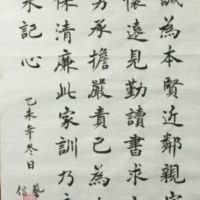 誠為本賢近鄰親
懷遠見勤讀書求
勇承擔嚴責己為
保清廉此家訓乃
永記心
乙未年冬日
藝信